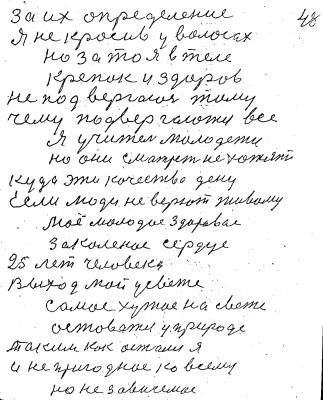 За их определение 48
Я не красив у волосах
но зато я в теле
крепок и здоров
не подвергался тому
чему подвергались все
Я учител молодежи
но они смотрет не хотят
куда эти качества дену
если люди не верют живому
Моё молодое здоровае
Закаленое сердце
25 лет человека
Выход мой усвете
самое хужое на свете
остовати у природе
таким как остался я
и не пригодное ко всему
но не зависемое